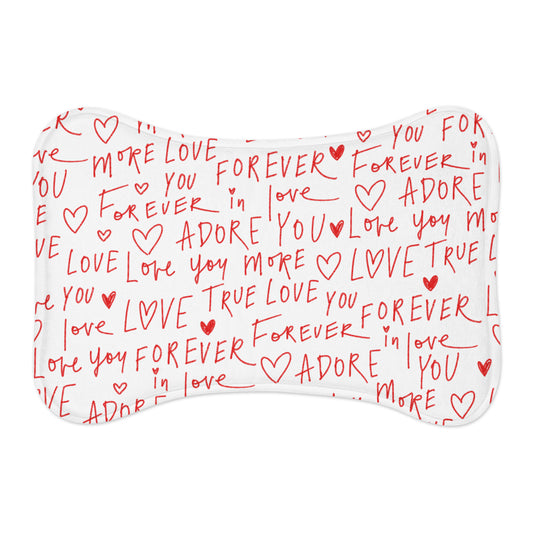 YOU FOR
MORE LOVE FOREVER Forever in
love YOU in love ADORE
YOU FOREVER
ADORE YOU Love you More
LOVE Love you More LOVE TRUE
YOU LOVE TRUE LOVE YOU FOREVER
love Forever in love
Love you FOREVER ADORE YOU
in love
VE ADORE MORE